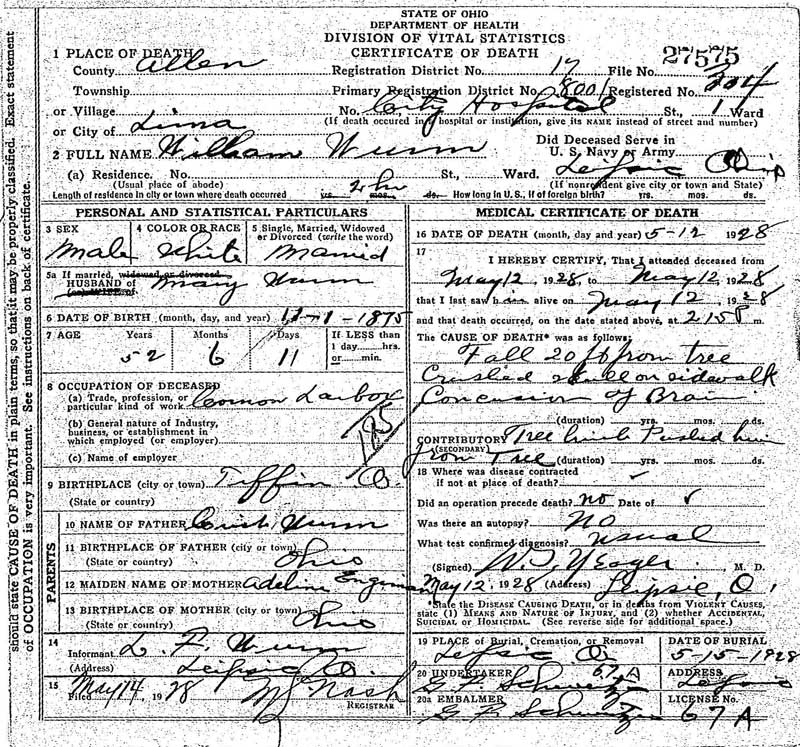 STATE OF OHIO
DEPARTMENT OF HEALTH
DIVISION OF VITAL STATISTICS
CERTIFICATE OF DEATH
27575
1 PLACE OF DEATH
County Allen Registration District No. 17 File No.
Township Primary Registration District No. 8001 Registered No. 204
or Village No. City Hospital St., 1 Ward
or City of Lima (If death occured in a hospital or institution, give its NAME instead of street and number)
2 FULL NAME William Wurm Did Deceased Serve in U. S. Navy or Army
(a) Residence. No. St., Ward. Leipsic Ohio
(Usual place of abode) (If nonresident give city or town and State)
Length of residence in city or town where death occurred yrs. mos. 2 hr ds. How long in U. S., if of foreign birth? yrs. mos. ds.
PERSONAL AND STATISTICAL PARTICULARS
3 SEX 4 COLOR OR RACE 5 Single, Married, Widowed or Divorced (write the word)
Male White Married
5a If married, widowed or divorced
HUSBAND of Mary Wurm
(or) WIFE of
6 DATE OF BIRTH (month, day, and year) 11-1-1875
7 AGE Years Months Days If LESS than
52 6 11 1 day hrs.
or min.
8 OCCUPATION OF DECEASED
(a) Trade, profession, or
particular kind of work Common Labor
(b) General nature of Industry,
business, or establishment in
which employed (or employer)
(c) Name of employer
185
9 BIRTHPLACE (city or town) Tiffin O.
(State or country)
PARENTS
10 NAME OF FATHER Wurm
11 BIRTHPLACE OF FATHER (city or town)
(State or country) Ohio
12 MAIDEN NAME OF MOTHER Adeline
13 BIRTHPLACE OF MOTHER (city or town)
(State or country) Ohio
14
Informant L. F. Wurm
(Address) Leipsic O.
15
Filed May 14, 1928 Nash
REGISTRAR
MEDICAL CERTIFICATE OF DEATH
16 DATE OF DEATH (month, day and year) 5-12 1928
17
I HEREBY CERTIFY, That I attended deceased from
May 12, 1928, to May 12, 1928
that I last saw him alive on May 12, 1928
and that death occurred, on the date stated above, at 215 P m.
The CAUSE OF DEATH* was as follows:
Fall 20 ft from tree
Crushed skull on sidewalk
Concusion of Brain
(duration) yrs. mos. ds.
CONTRIBUTORY Tree limb Pushed him
(SECONDARY)
from Tree (duration) yrs. mos. ds.
18 Where was disease contracted
if not at place of death?
Did an operation precede death? no Date of
Was there an autopsy? No
What test confirmed diagnosis? usual
(Signed) Yeager, M. D.
May 12, 1928 (Address) Leipsic, O.
*State the DISEASE CAUSING DEATH, or in deaths from VIOLENT CAUSES,
state (1) MEANS AND NATURE OF INJURY, and (2) whether ACCIDENTAL,
SUICIDAL or HOMICIDAL. (See reverse side for additional space.)
19 PLACE of Burial, Cremation, or Removal DATE OF BURIAL
Leipsic O. 5-15-1928
20 UNDERTAKER 67 A ADDRESS
20a EMBALMER LICENSE No.
67 A
should state CAUSE OF DEATH in plain terms, so that it may be properly classified. Exact statement
of OCCUPATION is very important. See instructions on back of certificate.